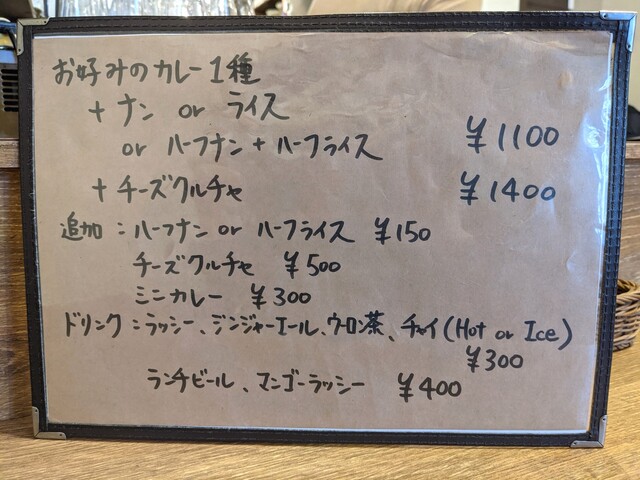 お好みのカレー1種
+ナン or ライス
or ハーフナン+ハーフライス ¥1100
+チーズクルチャ ¥1400
追加:ハーフナン or ハーフライス ¥150
チーズクルチャ ¥500
ミニカレー ¥300
ドリンク:ラッシー、ジンジャーエール、ウーロン茶、チャイ(Hot or Ice)
¥300
ランチビール、マンゴーラッシー ¥400